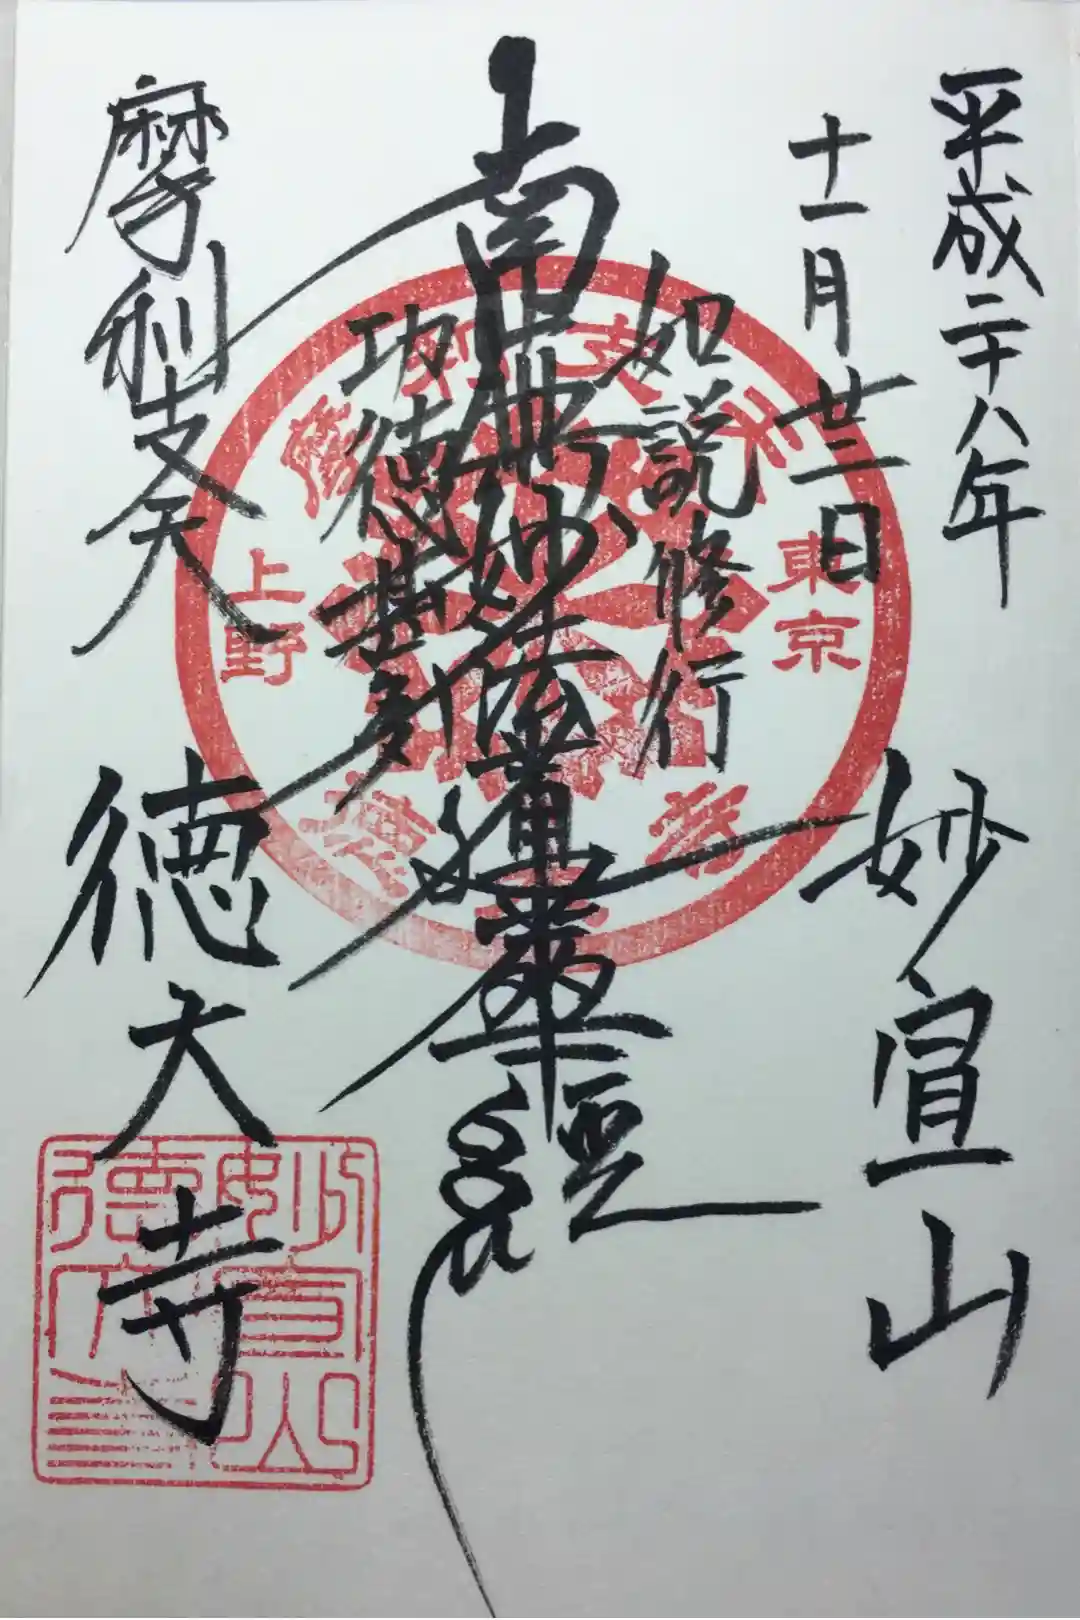 平成二十八年
十一月廿二日
妙宣山
如説修行
南無妙法蓮華經
功徳甚多
摩利支天
徳大寺
摩利支天
東京
上野
妙宣山
徳大寺